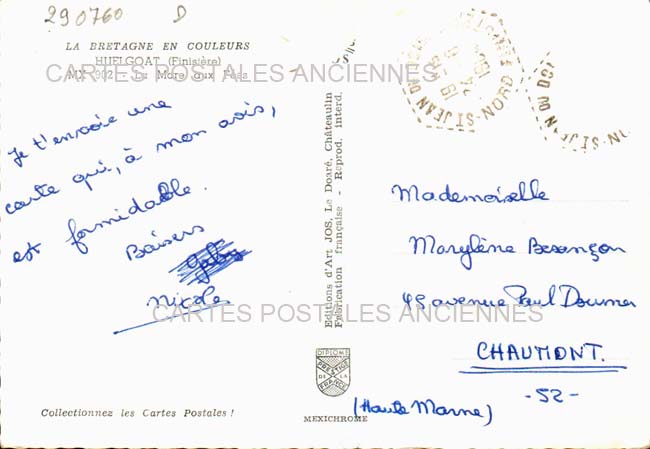 290760 D
LA BRETAGNE EN COULEURS
HUELGOAT (Finistère)
MX 302 - La Mare aux Fées
CARTES POSTALES ANCIENNES
Je t'envoie une
carte qui, à mon avis,
est formidable.
Baisers
Nicole
CARTES POSTALES ANCIENNES
Collectionnez les Cartes Postales !
Editions d'Art JOS, Le Doaré, Châteaulin
Fabrication française - Reprod. interd.
DIPLOME
PRESTIGE
DE LA
FRANCE
MEXICHROME
ST-JEAN DU DOIGT
NORD FINISTERE
ST-JEAN DU DOI
Mademoiselle
Marylène Besançon
avenue Paul Doumer
CHAUMONT.
-52-
(Haute Marne)